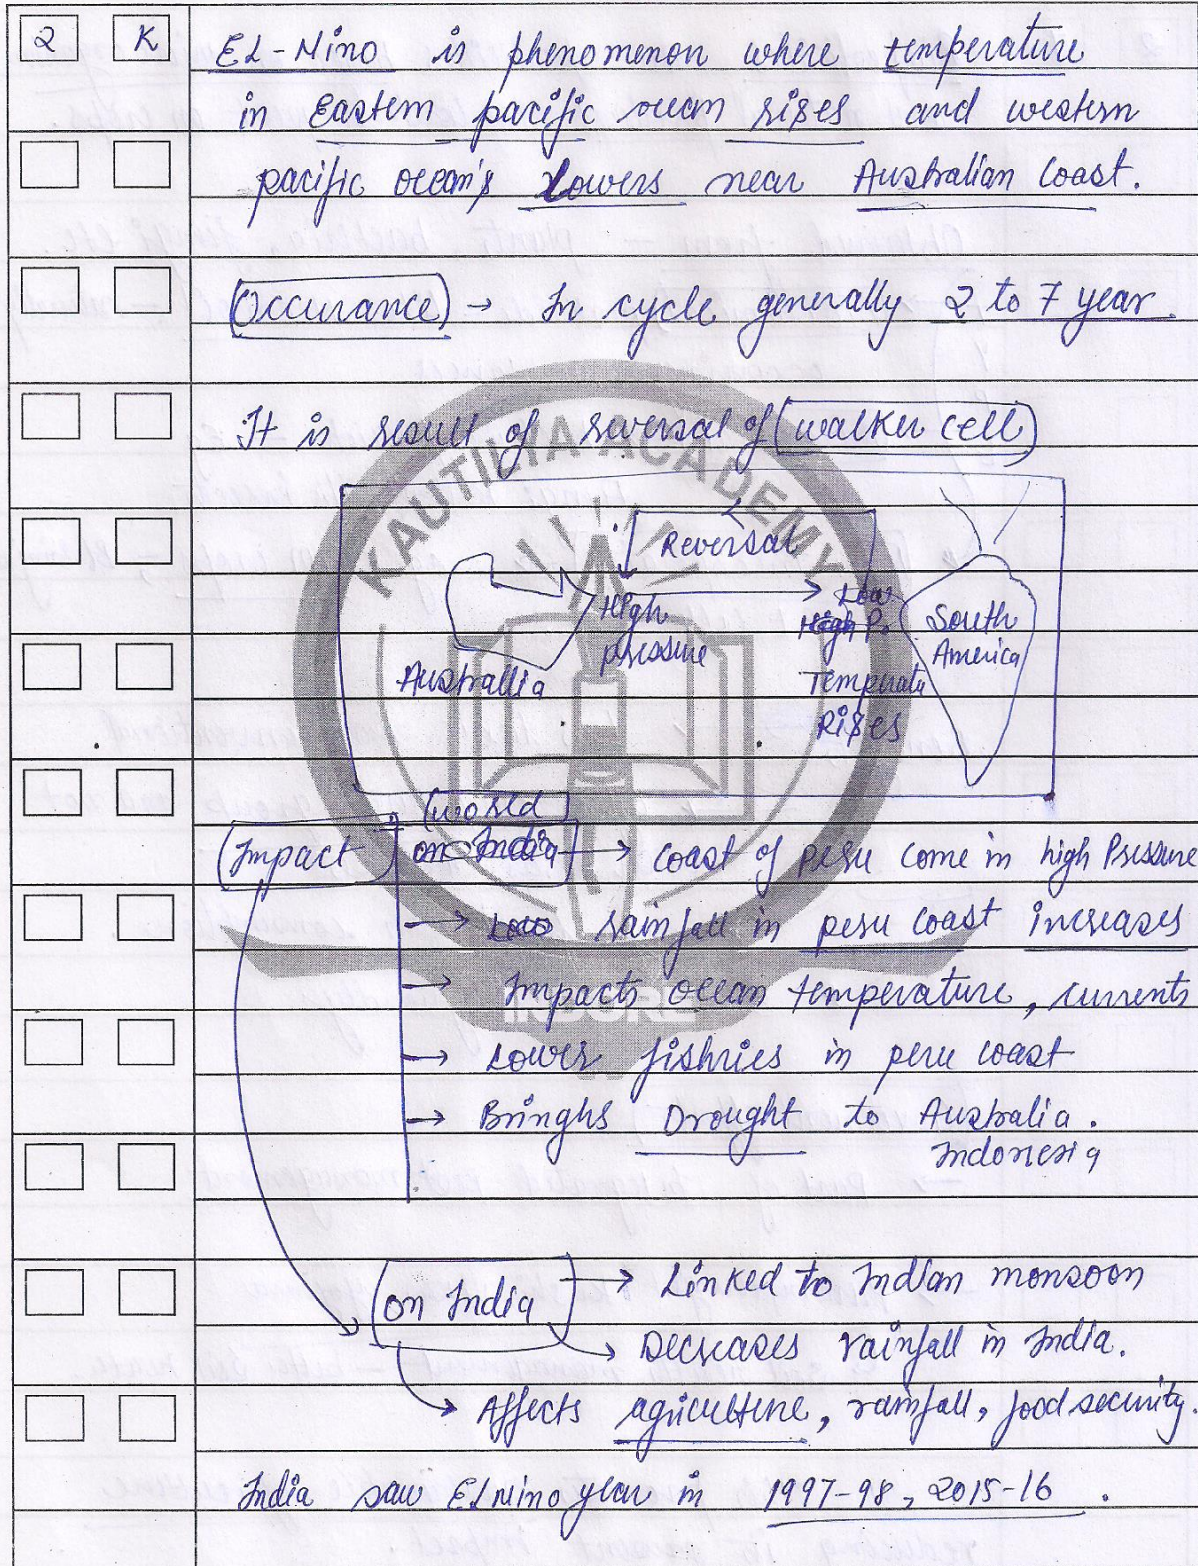 2 K
El-Nino is phenomenon where temperature
in Eastern pacific ocean rises and western
pacific ocean's lowers near Australian Coast.
Occurance → In cycle generally 2 to 7 year.
It is result of reversal of walker cell
KAUTILYA ACADEMY
Reversal
High pressure
Low
High P.
South America
Australlia
Temperatu
Rises
world
Impact on India → coast of peru come in high Pressure
→ Low rainfall in peru coast increases
→ Impacts ocean temperature, currents
INDORE
→ Lowers fishries in peru coast
→ Bringhs Drought to Australia.
Indonesia
on India → Linked to Indian monsoon
→ Decreases rainfall in India.
→ Affects agriculture, rainfall, food security.
India saw El Nino year in 1997-98, 2015-16.